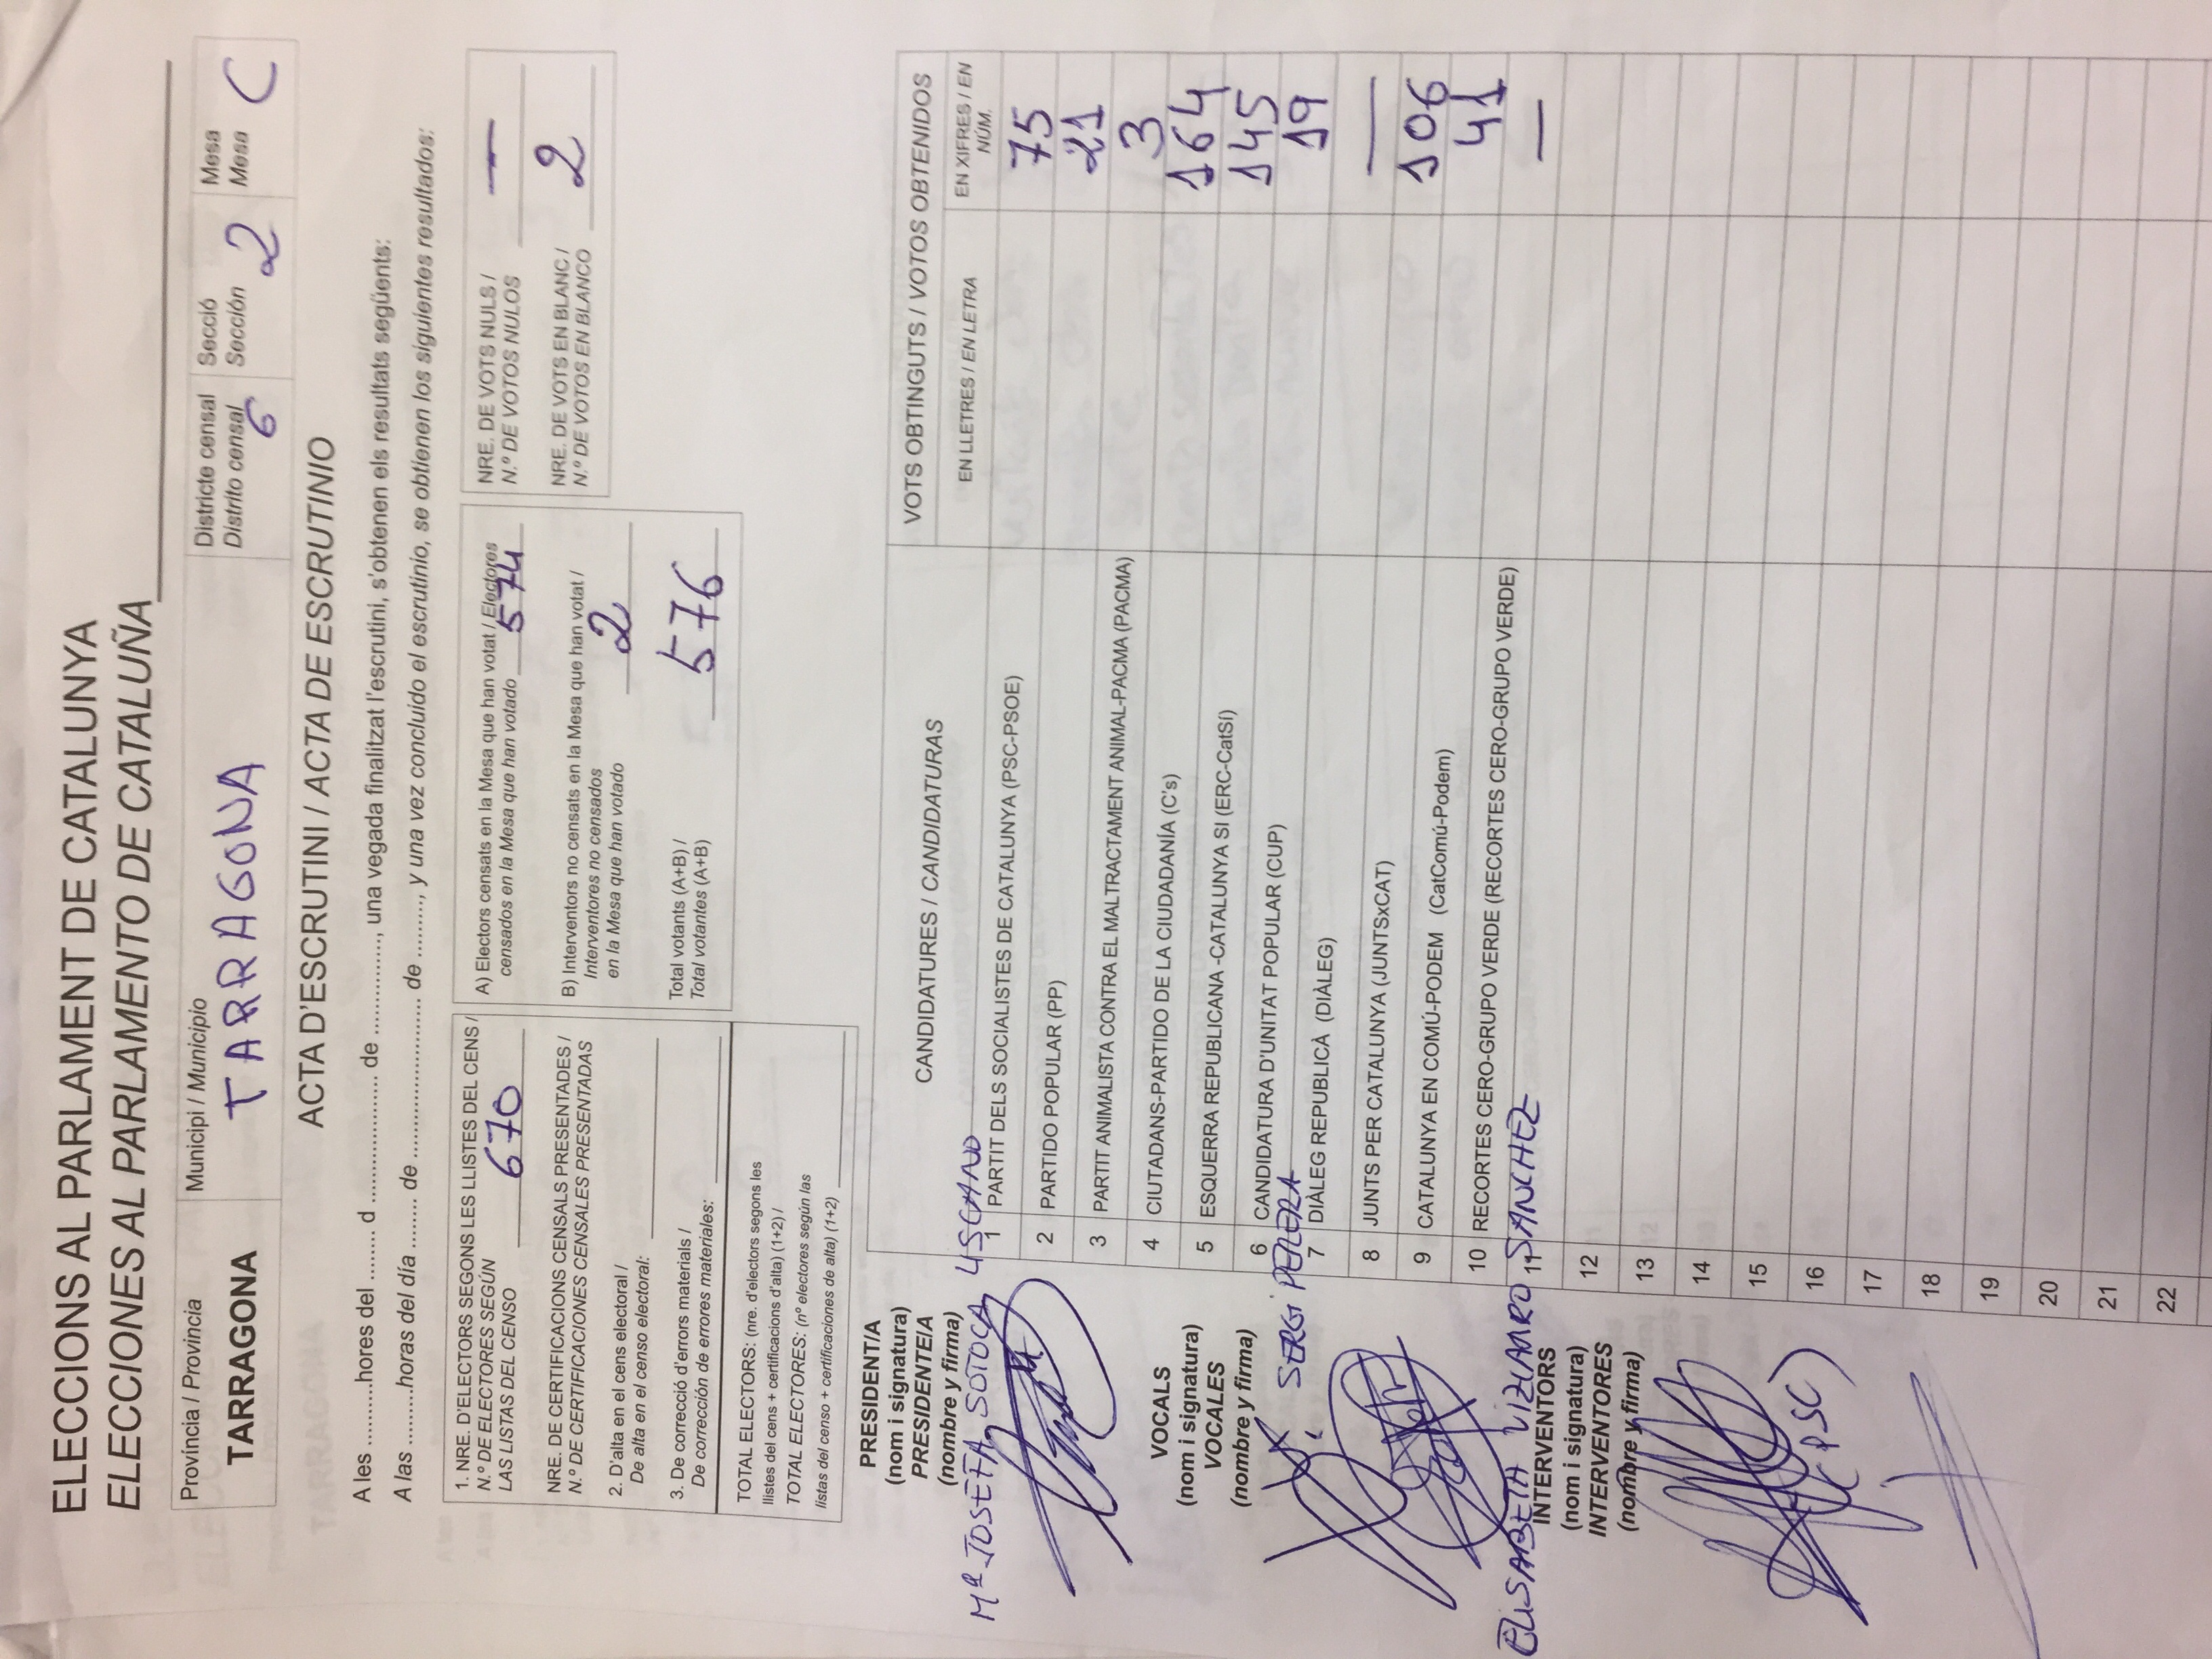 ELECCIONS AL PARLAMENT DE CATALUNYA
ELECCIONES AL PARLAMENTO DE CATALUÑA
Província / Provincia
TARRAGONA
Municipi / Municipio
TARRAGONA
Districte censal
Distrito censal
6
Secció
Sección 2
Mesa
Mesa C
ACTA D'ESCRUTINI / ACTA DE ESCRUTINIO
A les ..........hores del ........ d .................... de ..............., una vegada finalitzat l'escrutini, s'obtenen els resultats següents:
A las .........horas del día ........ de ......................... de ........., y una vez concluido el escrutinio, se obtienen los siguientes resultados:
1. NRE. D'ELECTORS SEGONS LES LLISTES DEL CENS /
N.º DE ELECTORES SEGÚN
LAS LISTAS DEL CENSO 670
NRE. DE CERTIFICACIONS CENSALS PRESENTADES /
N.º DE CERTIFICACIONES CENSALES PRESENTADAS
2. D'alta en el cens electoral /
De alta en el censo electoral:
3. De correcció d'errors materials /
De corrección de errores materiales:
TOTAL ELECTORS: (nre. d'electors segons les
llistes del cens + certificacions d'alta) (1+2) /
TOTAL ELECTORES: (nº electores según las
listas del censo + certificaciones de alta) (1+2)
A) Electors censats en la Mesa que han votat / Electores
censados en la Mesa que han votado 574
B) Interventors no censats en la Mesa que han votat /
Interventores no censados
en la Mesa que han votado 2
Total votants (A+B) /
Total votantes (A+B) 576
NRE. DE VOTS NULS /
N.º DE VOTOS NULOS —
NRE. DE VOTS EN BLANC /
N.º DE VOTOS EN BLANCO 2
PRESIDENT/A
(nom i signatura)
PRESIDENTE/A
(nombre y firma)
Mª JOSEFA SOTOCA LISCANO
VOCALS
(nom i signatura)
VOCALES
(nombre y firma)
SERGI PERERA
ELISABETH VIZCARRO SANCHEZ
INTERVENTORS
(nom i signatura)
INTERVENTORES
(nombre y firma)
(PSC)
CANDIDATURES / CANDIDATURAS
VOTS OBTINGUTS / VOTOS OBTENIDOS
EN LLETRES / EN LETRA
EN XIFRES / EN
NÚM.
1 PARTIT DELS SOCIALISTES DE CATALUNYA (PSC-PSOE) 75
2 PARTIDO POPULAR (PP) 21
3 PARTIT ANIMALISTA CONTRA EL MALTRACTAMENT ANIMAL-PACMA (PACMA) 3
4 CIUTADANS-PARTIDO DE LA CIUDADANÍA (C's) 164
5 ESQUERRA REPUBLICANA -CATALUNYA SI (ERC-CatSí) 145
6 CANDIDATURA D'UNITAT POPULAR (CUP) 19
7 DIÀLEG REPUBLICÀ (DIÀLEG) —
8 JUNTS PER CATALUNYA (JUNTSxCAT) 106
9 CATALUNYA EN COMÚ-PODEM (CatComú-Podem) 41
10 RECORTES CERO-GRUPO VERDE (RECORTES CERO-GRUPO VERDE) —
11
12
13
14
15
16
17
18
19
20
21
22